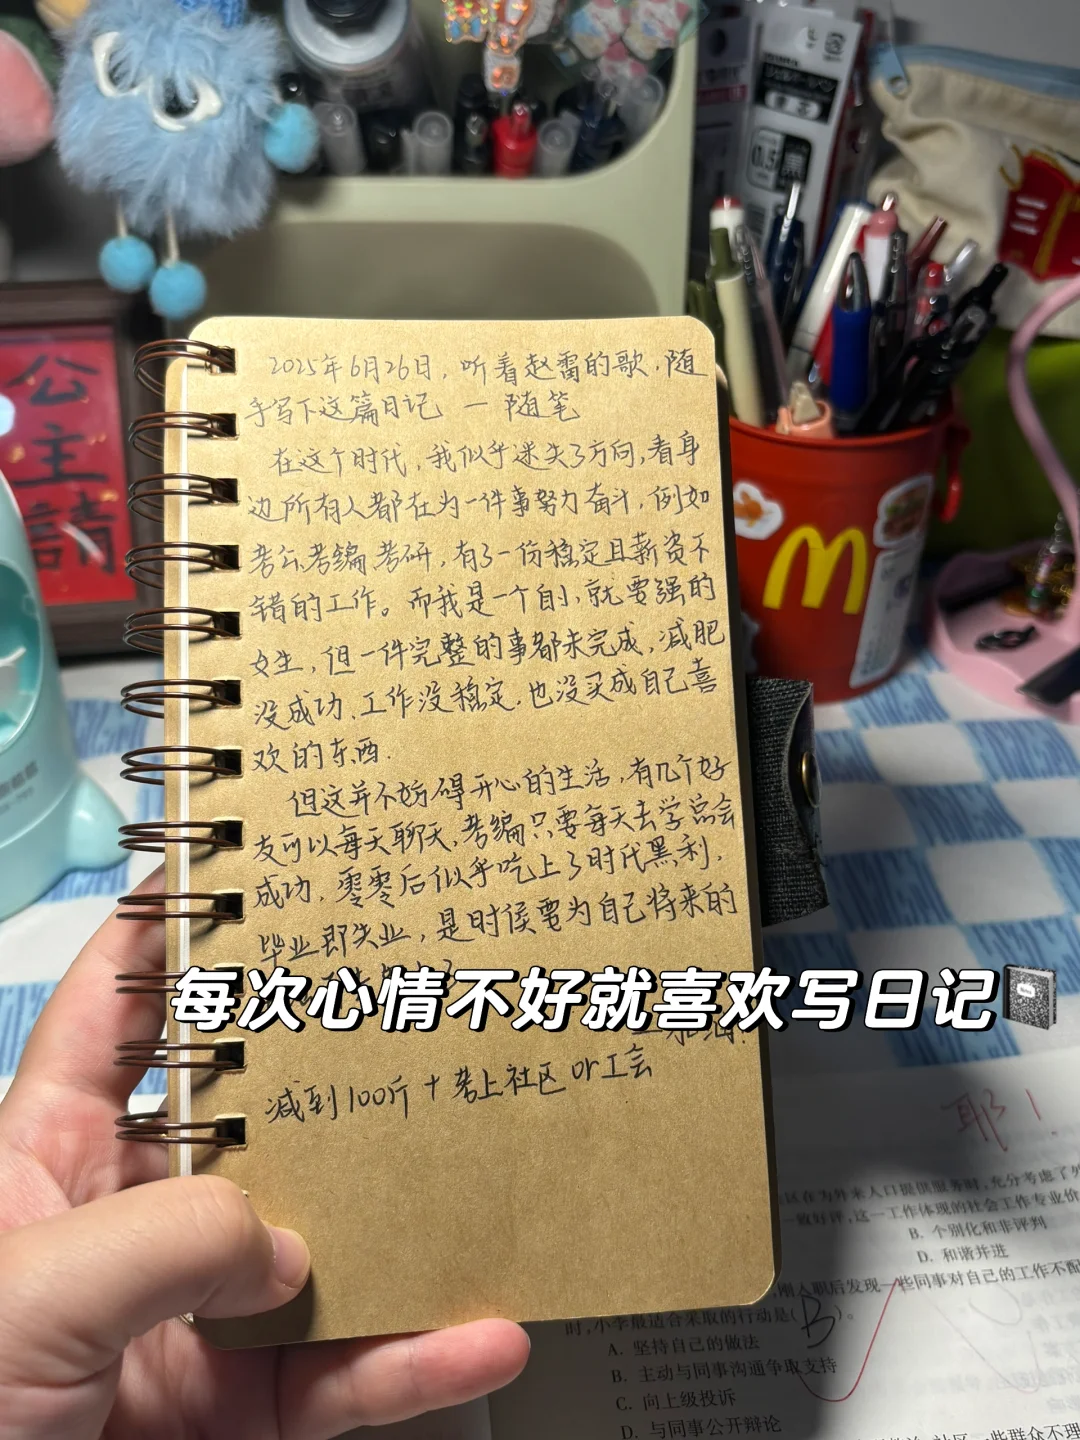 公主請
0.5
黑
三
M
2025年6月26日，听着赵雷的歌，随
手写下这篇日记 — 随笔
在这个时代，我似乎迷失了方向，看身
边所有人都在为一件事努力奋斗，例如
考公考编考研，有了一份稳定且薪资不
错的工作。而我是一个自小就要强的
女生，但一件完整的事都未完成，减肥
没成功、工作没稳定，也没买成自己喜
欢的东西.
但这并不妨碍开心的生活，有几个好
友可以每天聊天，考编只要每天去学总会
成功，零零后似乎吃上了时代黑利，
毕业即失业，是时候要为自己将来的
每次心情不好就喜欢写日记
减到100斤 + 考上社区 or 工会
耶！
区在为外来人口提供服务时，充分考虑了外
一致好评，这一工作体现的社会工作专业价
B. 个别化和非评判
D. 和谐并进
刚入职后发现一些同事对自己的工作不配
时，小李最适合采取的行动是（B）。
A. 坚持自己的做法
B. 主动与同事沟通争取支持
C. 向上级投诉
D. 与同事公开辩论